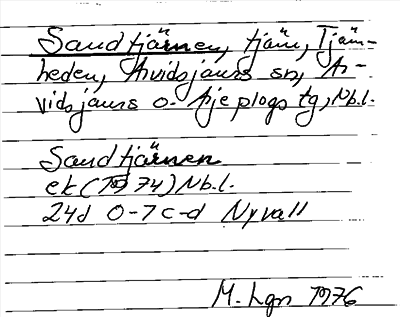 Sandtjärnen, tjärn, Tjärn-
heden, Arvidsjaurs sn, Ar-
vidsjaurs o. Arjeplogs tg, Nb.l.
Sandtjärnen
ek (1974) Nb.l.
24d 0-7 c-d Nyvall
M. Lgn 1976